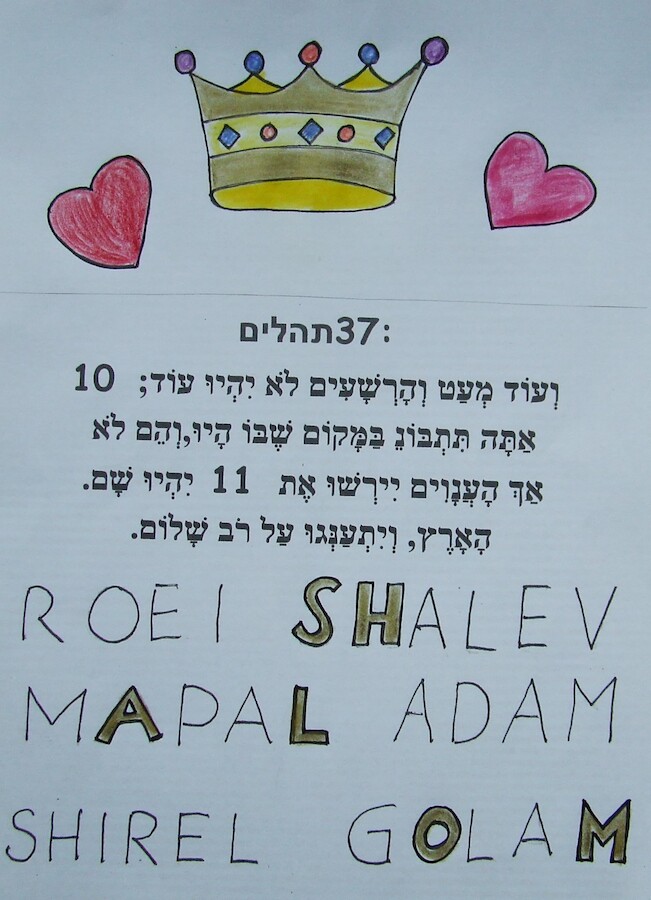 תהלים37:
10 וְעוֹד מְעַט וְהָרְשָׁעִים לֹא יִהְיוּ עוֹד;
אַתָּה תִּתְבּוֹנֵ בַּמָּקוֹם שֶׁבּוֹ הָיוּ,וְהֵם לֹא
יִהְיוּ שָׁם. 11 אַךְ הָעֲנָוִים יִירְשׁוּ אֶת
הָאָרֶץ, וְיִתְעַנְּגוּ עַל רֹב שָׁלוֹם.
ROEI SHALEV
MAPAL ADAM
SHIREL GOLAM